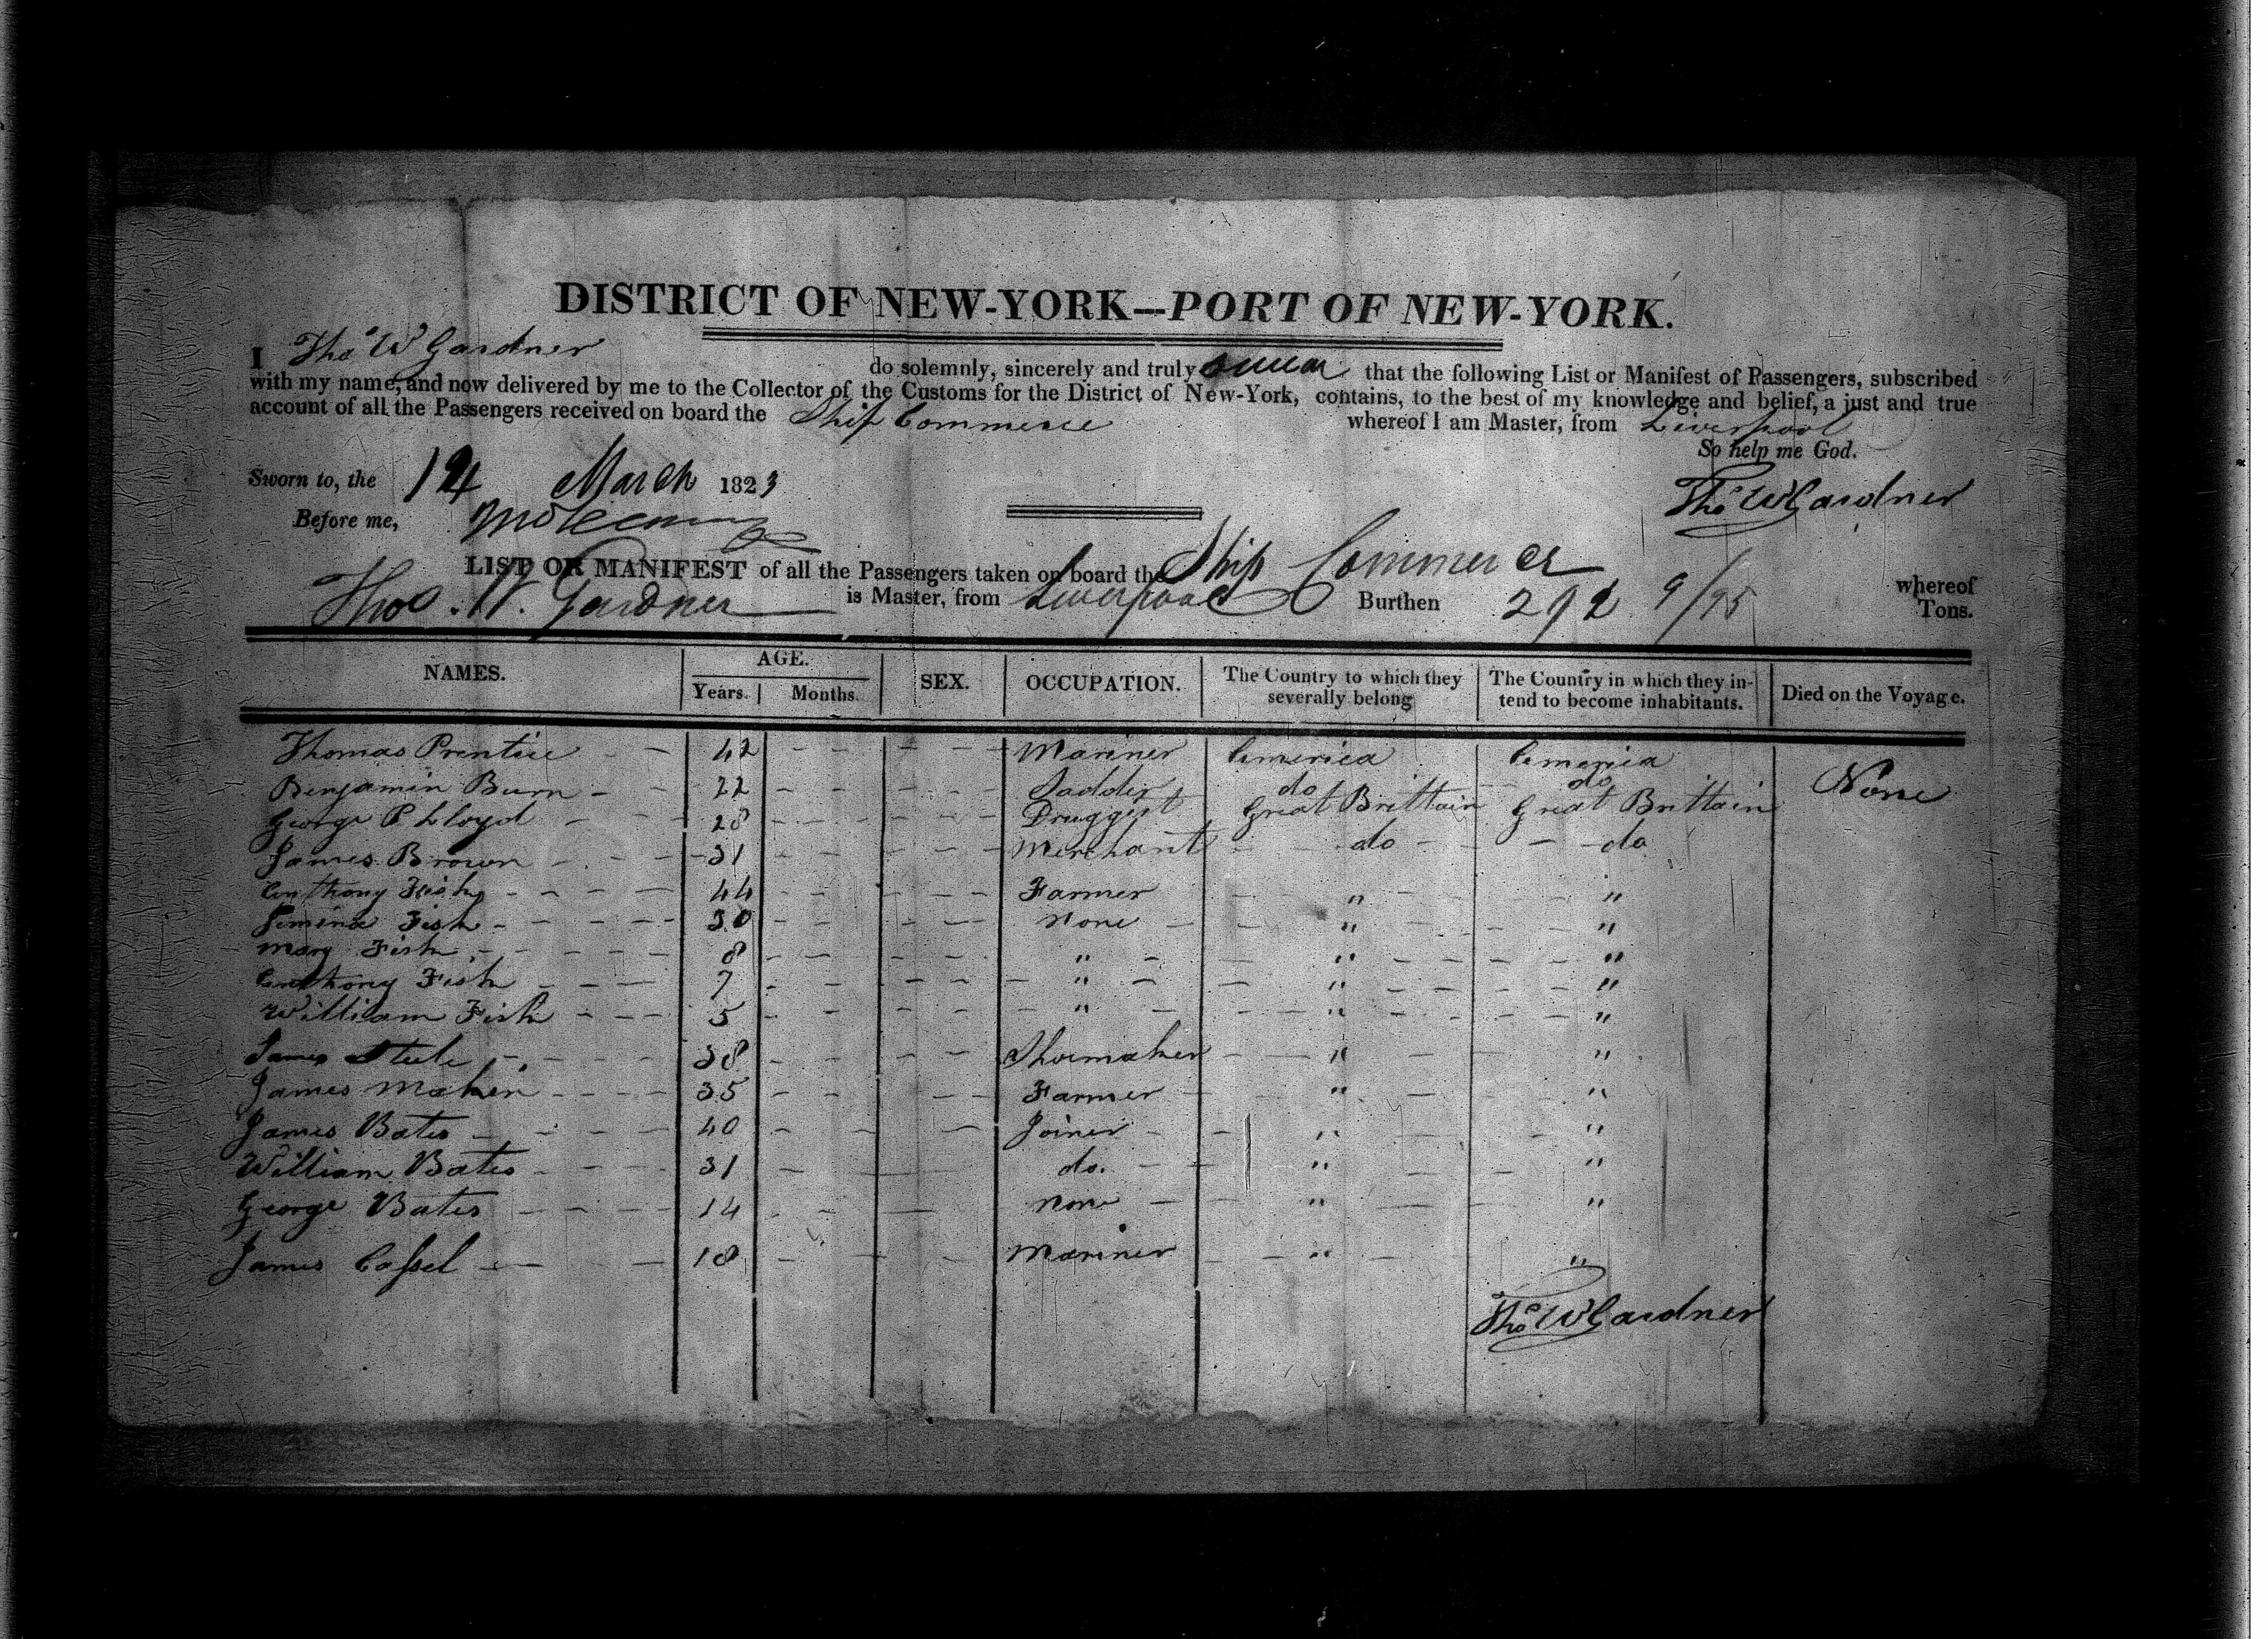 DISTRICT OF NEW-YORK—PORT OF NEW-YORK.
I Thos W Gardner do solemnly, sincerely and truly swear that the following List or Manifest of Passengers, subscribed
with my name, and now delivered by me to the Collector of the Customs for the District of New-York, contains, to the best of my knowledge and belief, a just and true
account of all the Passengers received on board the Ship Commerce whereof I am Master, from Liverpool
So help me God.
Sworn to, the March 1823
Thos W Gardner
Before me,
LIST OR MANIFEST of all the Passengers taken on board the Ship Commerce whereof
Thos. W. Gardner is Master, from Liverpool Burthen 292 9/95 Tons.
NAMES. AGE. SEX. OCCUPATION. The Country to which they severally belong The Country in which they in-tend to become inhabitants. Died on the Voyage.
Years. Months.
Thomas Prentice - - 42 - - - - - Mariner America America None
Benjamin Burn - - 22 - - - - - Sadder do do
George P Lloyd - - 28 - - - - - Druggist Great Brittain Great Brittain
James Brown - - - 31 - - - - - Merchant do do
Anthony Fish - - - 44 - - - - - Farmer " "
Jemima Fish - - - 30 - - - - - None " "
Mary Fish - - - 8 - - - - - " " "
Anthony Fish - - - 7 - - - - - " " "
William Fish - - - 5 - - - - - " " "
James Steele - - - 38 - - - - - Shoemaker " "
James Maher - - - 35 - - - - - Farmer " "
James Bates - - - 40 - - - - - Joiner " "
William Bates - - - 31 - - - do. " "
George Bates - - - 14 - - - None " "
James Cassel - - - 18 - - - - Mariner " "
Thos W Gardner